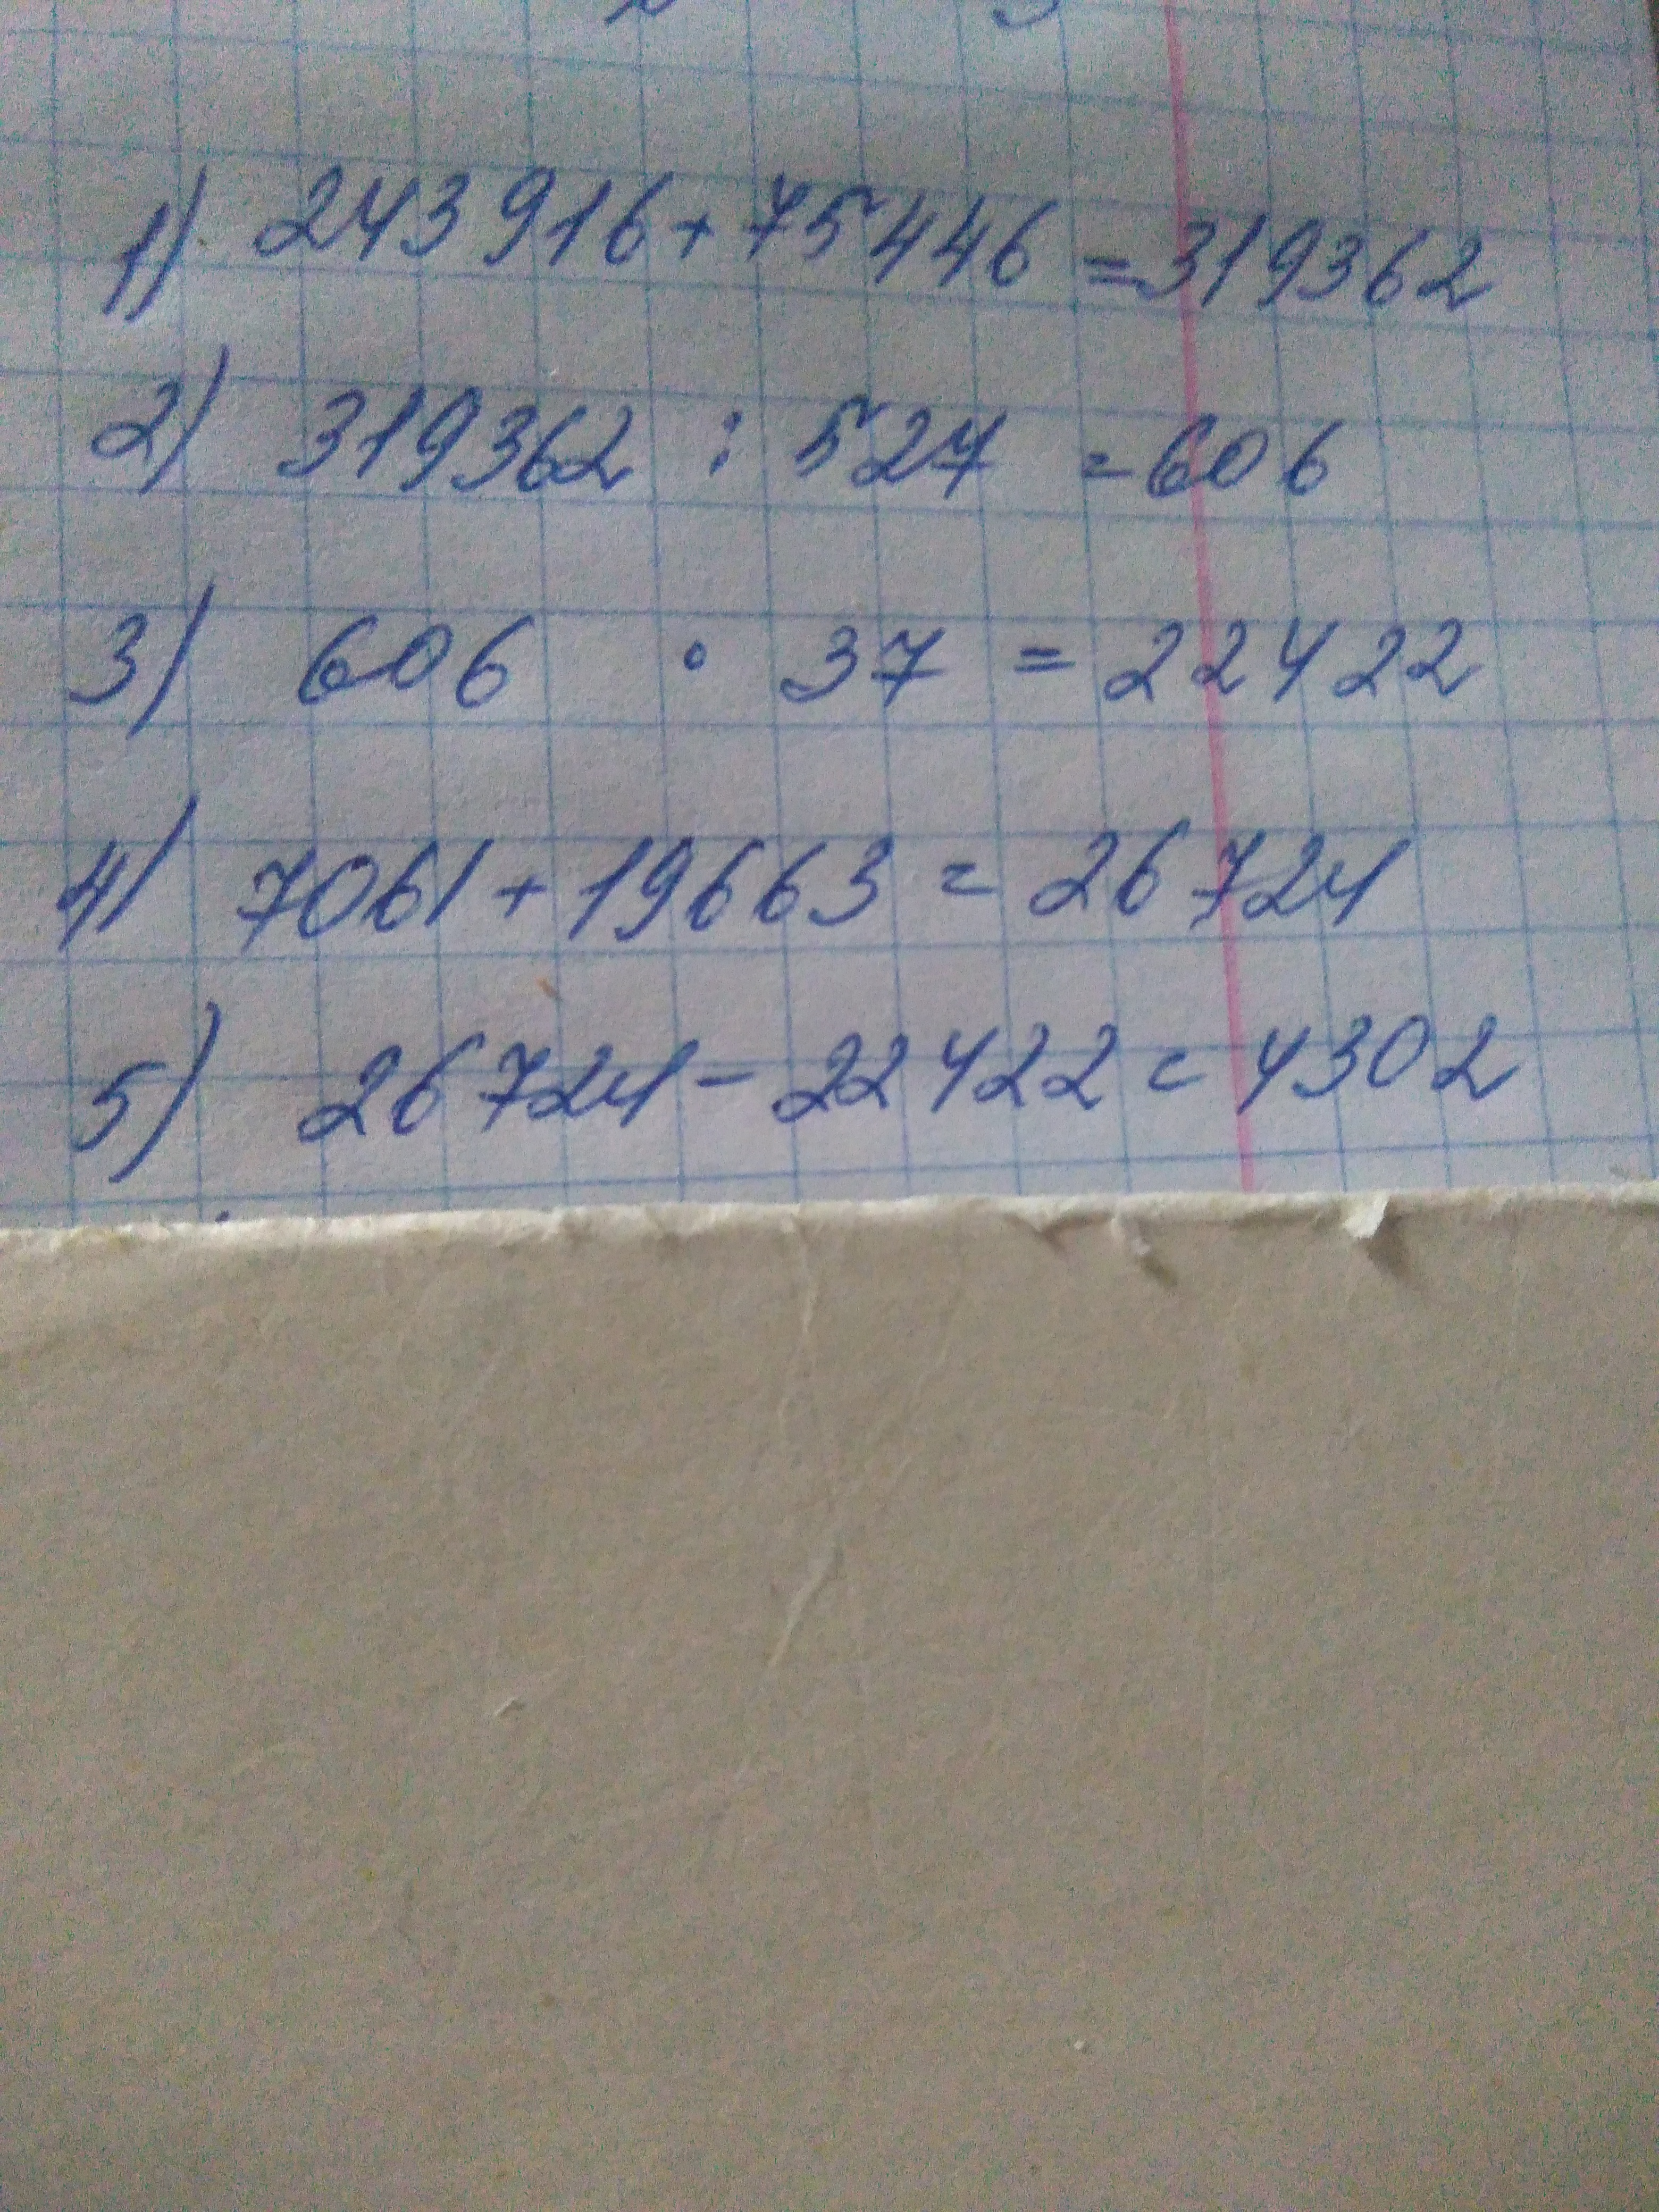 1) 243916+75446=319362
2) 319362 : 527 =606
3) 606 · 37 = 22422
4) 7061+19663 = 26724
5) 26724-22422=4302